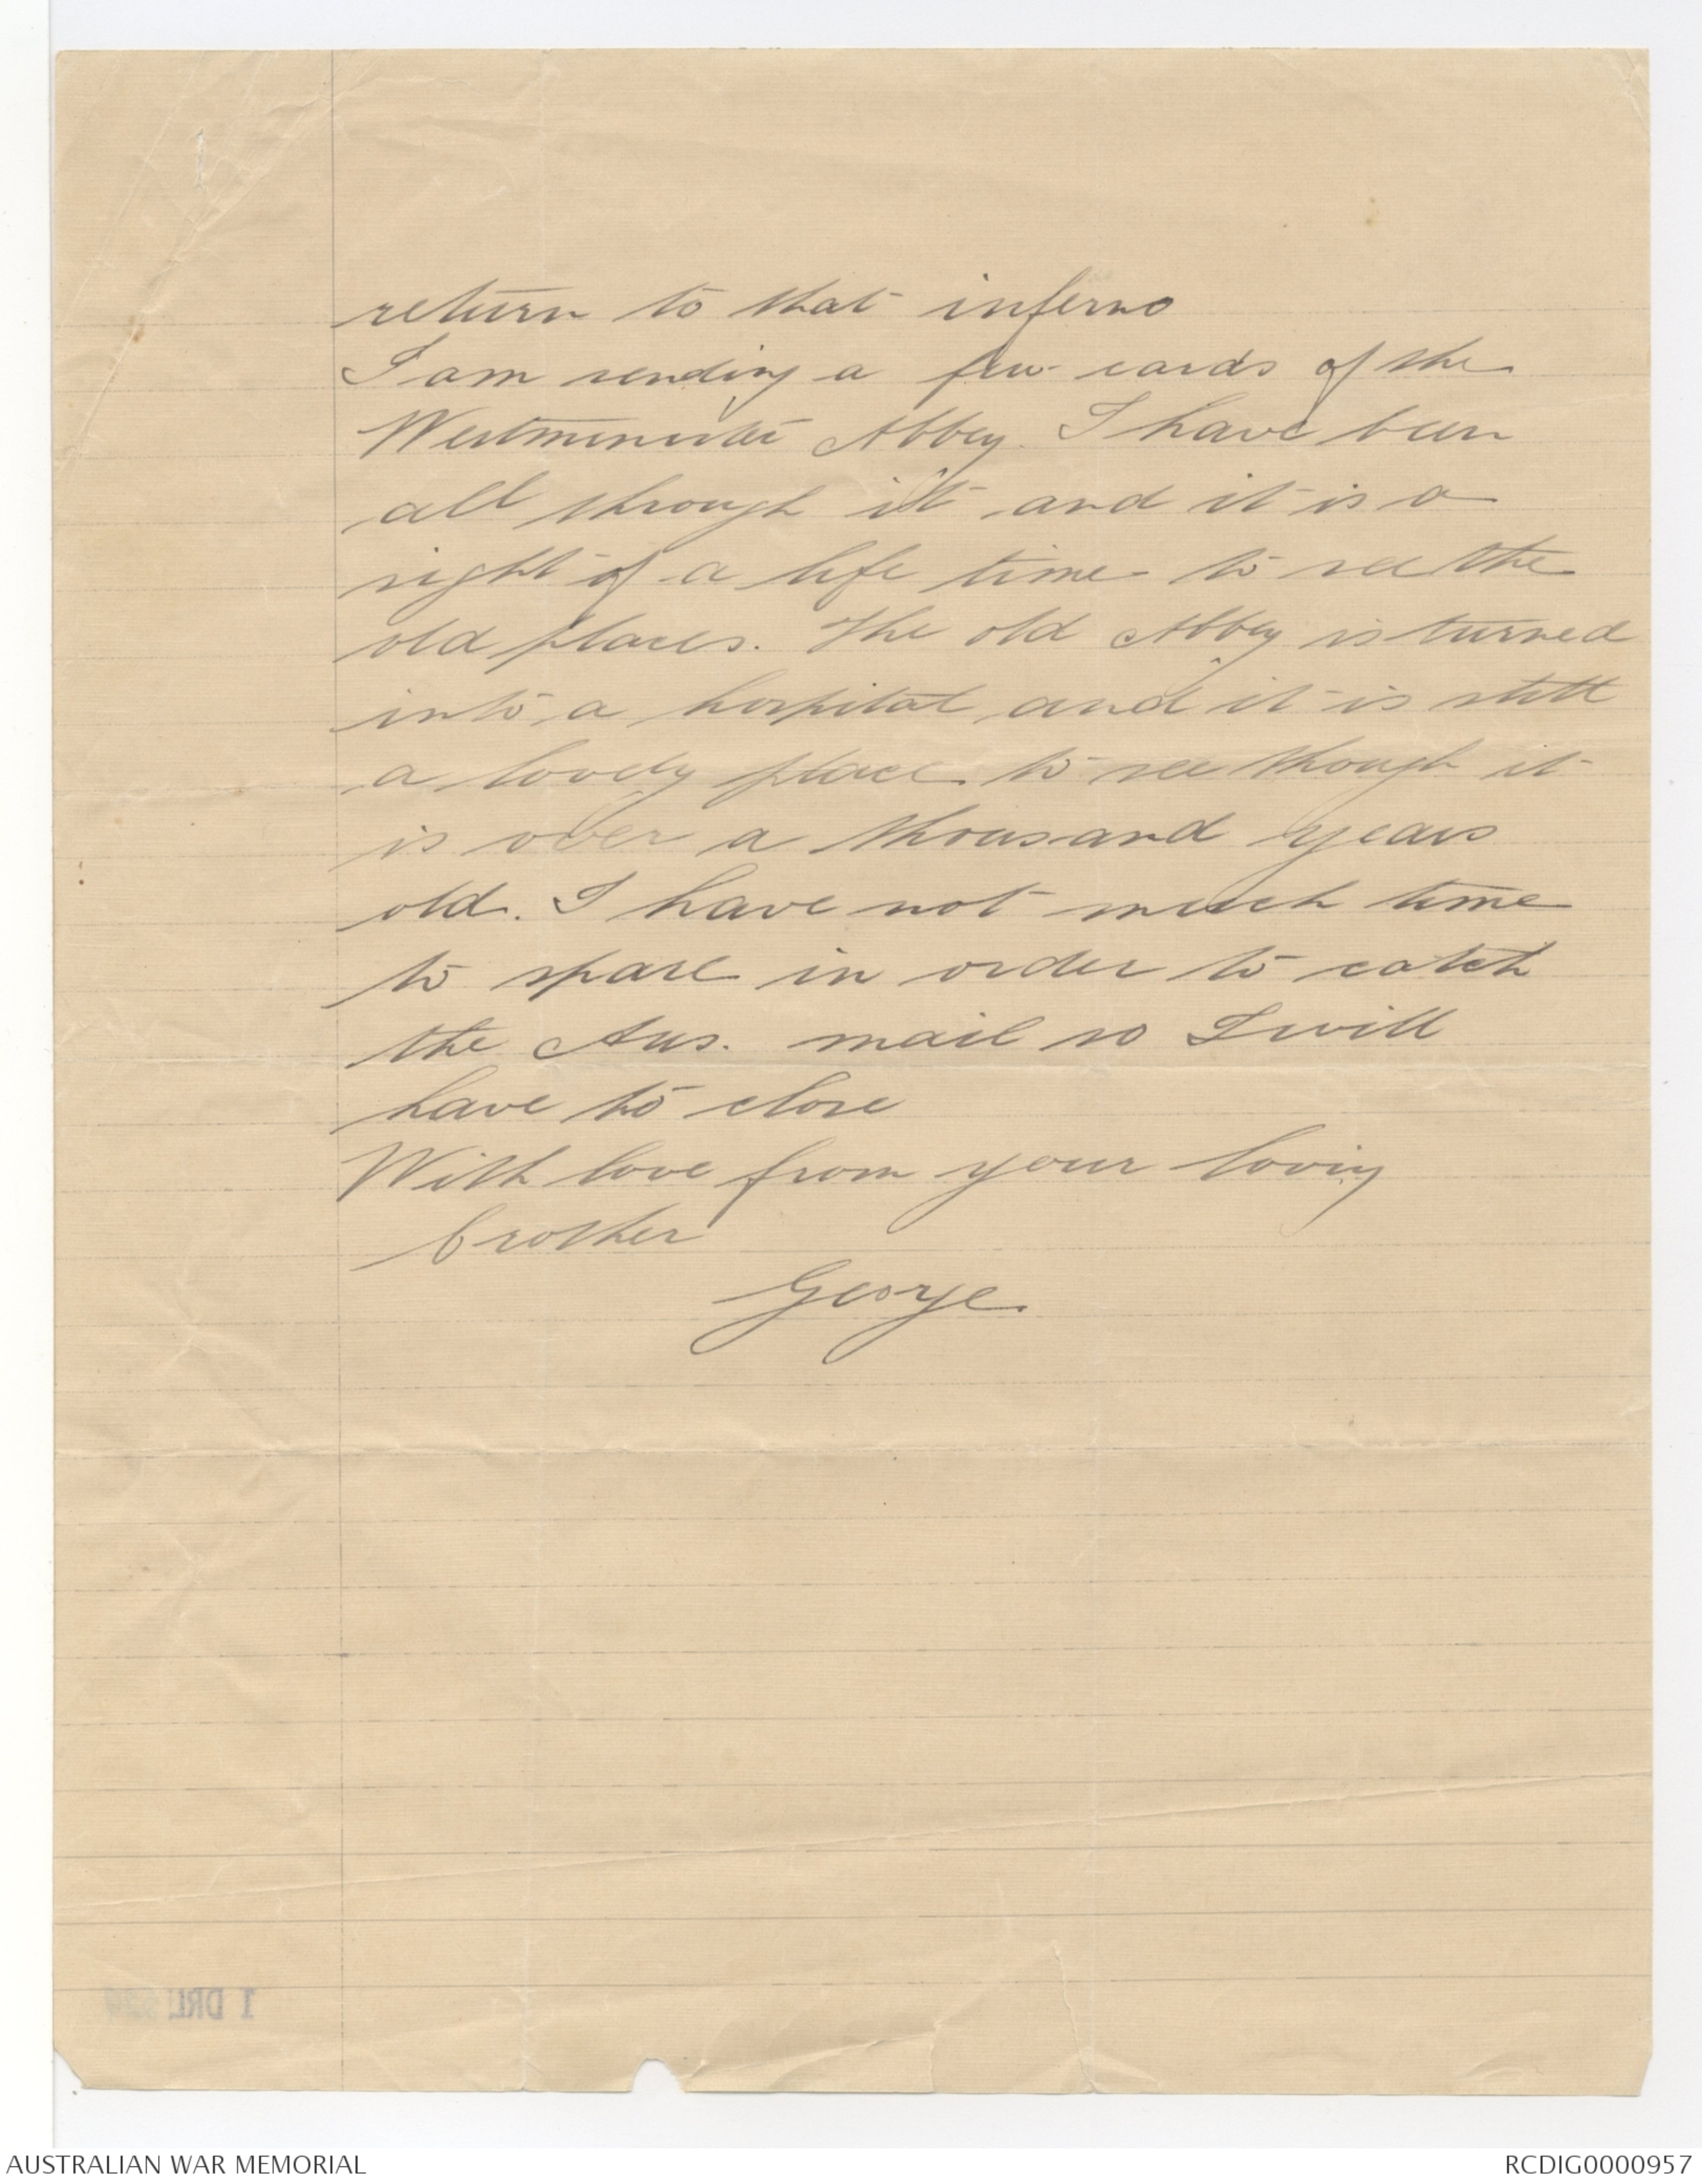 return to that inferno
I am sending a few cards of the
Westminster Abbey. I have been
all through it and it is a
sight of a life time to see the
old places. The old Abbey is turned
into a hospital and it is still
a lovely place to see though it
is over a thousand years
old. I have not much time
to spare in order to catch
the Aus. mail so I will
have to close
With love from your loving
brother
George.
1 DRL
AUSTRALIAN WAR MEMORIAL
RCDIG0000957